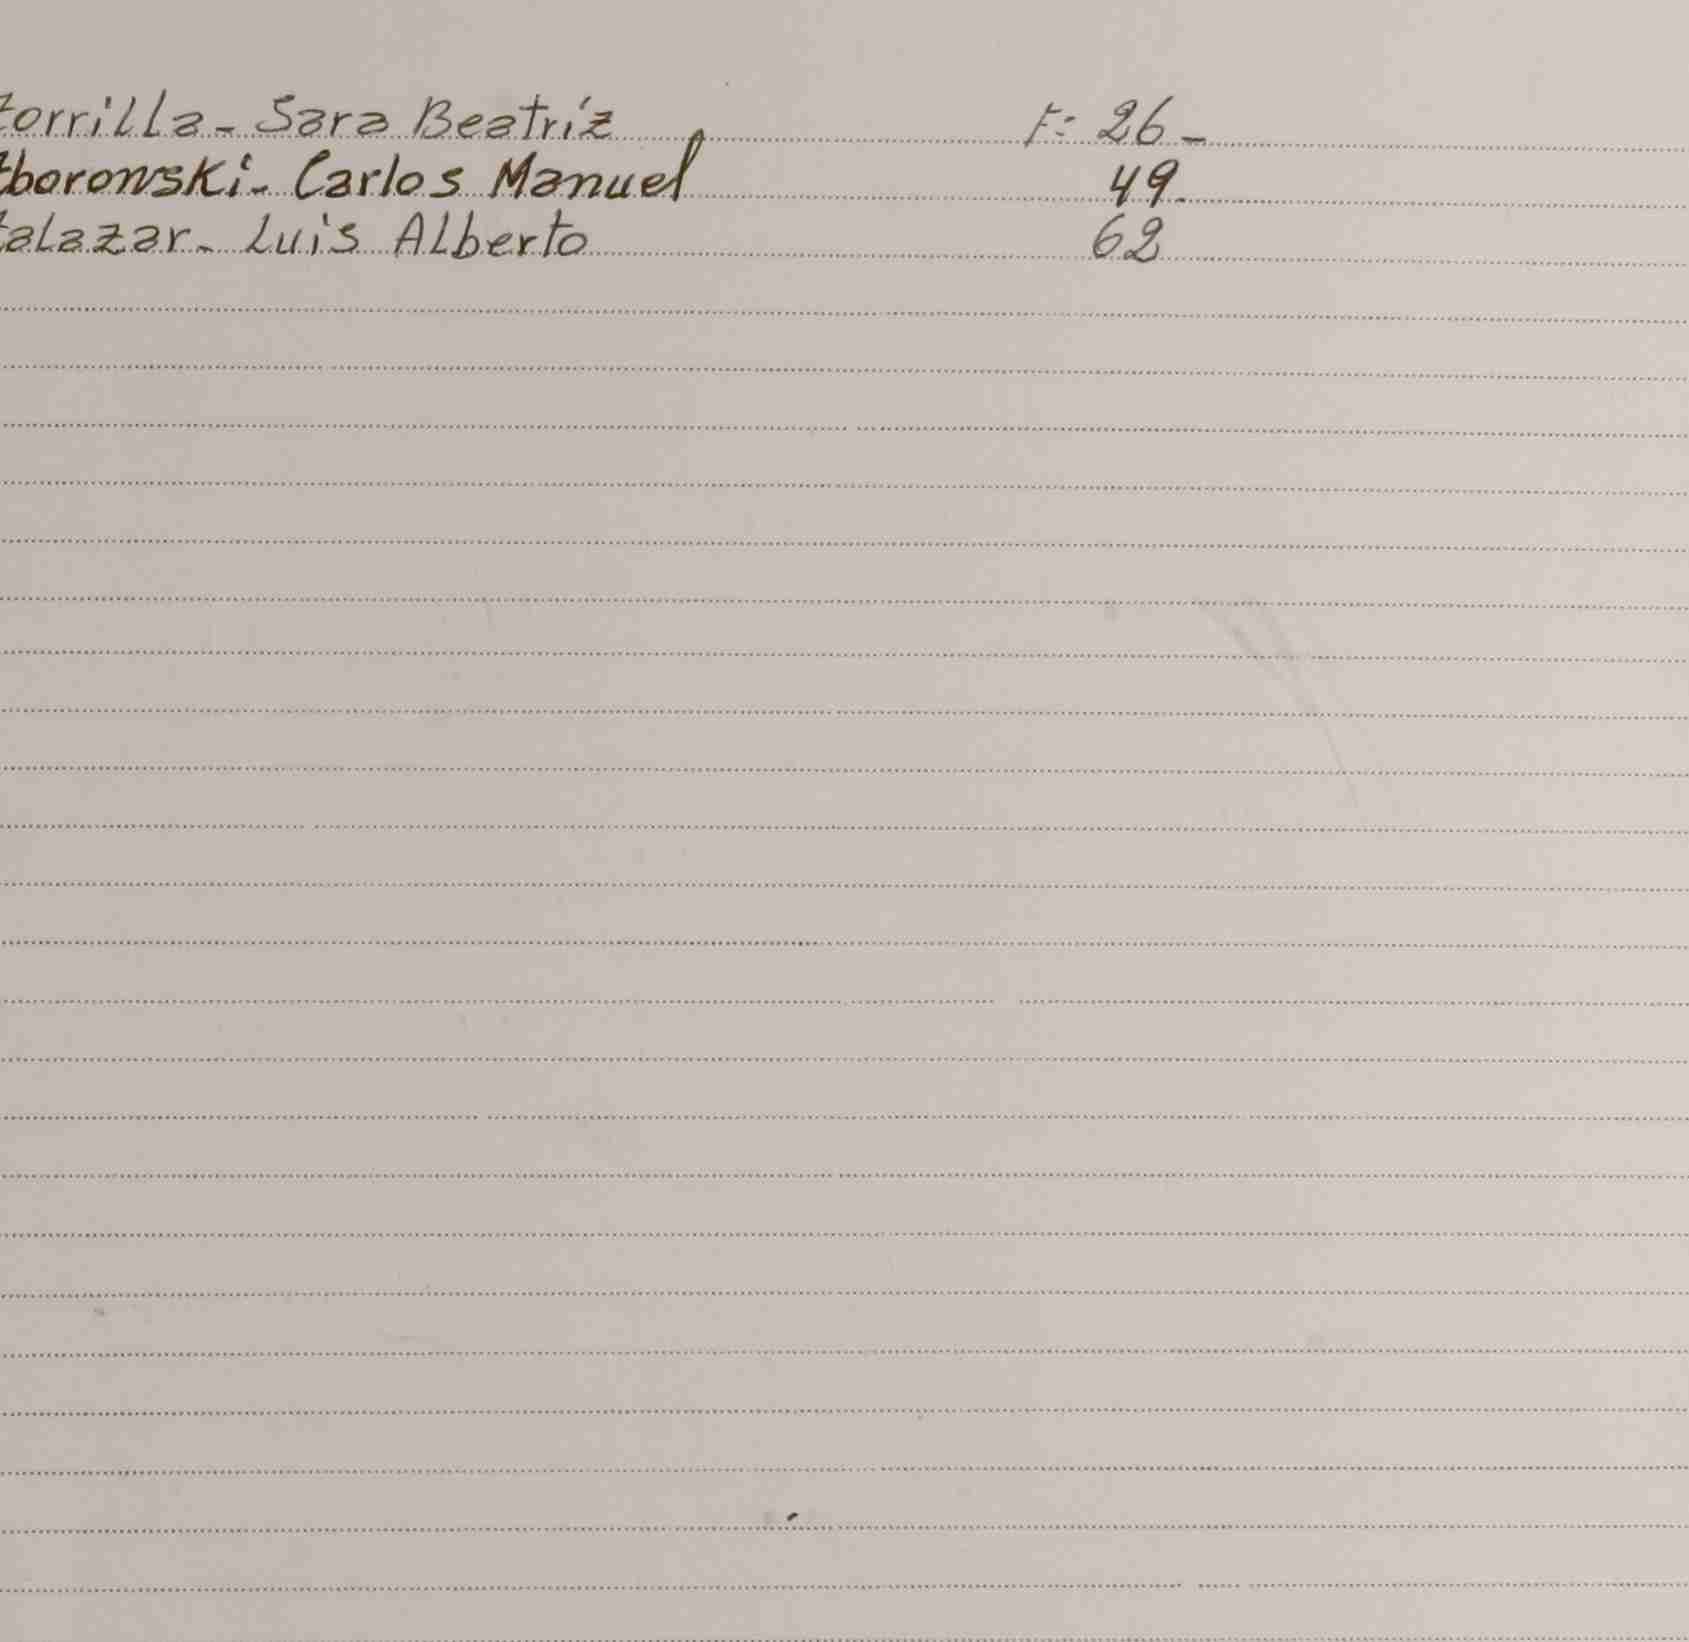 Zorrilla - Sara Beatriz F: 26 -
Zboronski - Carlos Manuel 49 -
Zalazar - Luis Alberto 62